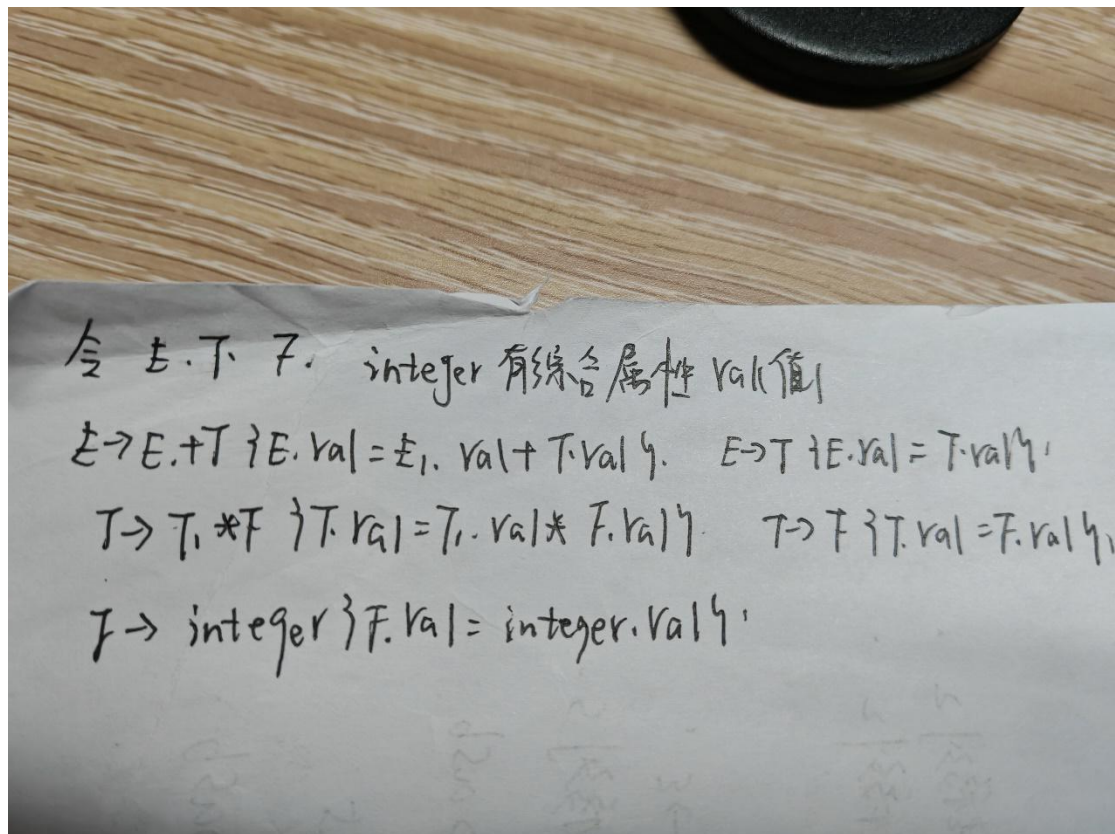 令 E. T. F. integer 有综合属性 val(值)
E→E₁+T {E.val=E₁.val+T.val}. E→T {E.val=T.val}.
T→T₁*F {T.val=T₁.val*F.val}. T→F {T.val=F.val}.
F→integer {F.val=integer.val}.